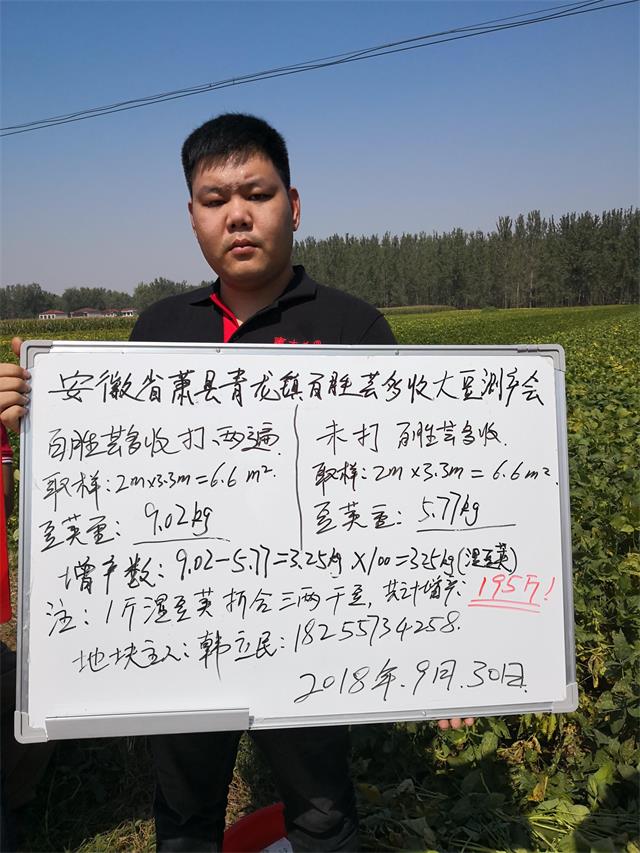 安徽省萧县青龙镇百胜芸多收大豆测产会
百胜芸多收打两遍
取样：2m×3.3m=6.6m².
豆荚重：9.02kg
未打 百胜芸多收.
取样：2m×3.3m=6.6m².
豆荚重：5.77kg
增产数：9.02-5.77=3.25kg×100=325kg(湿豆荚)
注：1斤湿豆荚折合三两干豆，共计增产：195斤！
地块主人：韩立民：18255734258.
2018年.9月.30日.